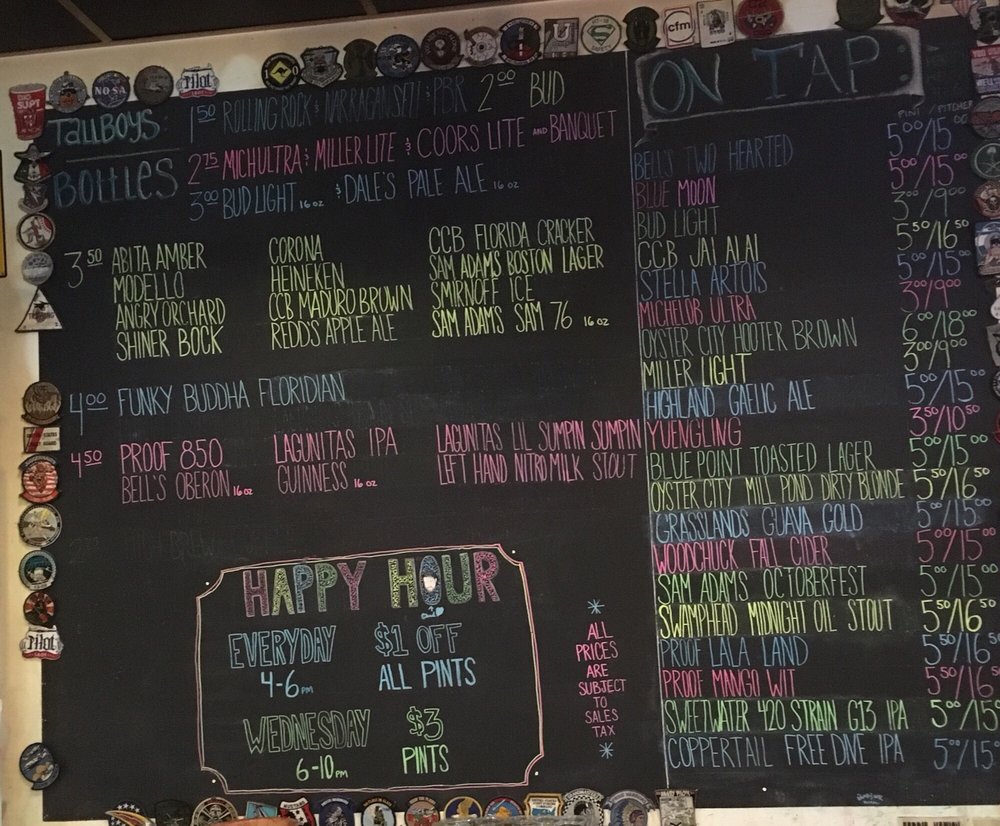 TALLBOYS
1 50 ROLLING ROCK & NARRAGANSETT & PBR 2 00 BUD
BOTTLES
2 75 MICHULTRA & MILLER LITE & COORS LITE AND BANQUET
3 00 BUD LIGHT 16 OZ & DALE'S PALE ALE 16 OZ
3 50 ABITA AMBER CORONA CCB FLORIDA CRACKER
MODELLO HEINEKEN SAM ADAMS BOSTON LAGER
ANGRY ORCHARD CCB MADURO BROWN SMIRNOFF ICE
SHINER BOCK REDD'S APPLE ALE SAM ADAMS SAM 76 16 OZ
4 00 FUNKY BUDDHA FLORIDIAN
4 50 PROOF 850 LAGUNITAS IPA LAGUNITAS LIL SUMPIN SUMPIN
BELL'S OBERON 16 OZ GUINNESS 16 OZ LEFT HAND NITRO MILK STOUT
HAPPY HOUR
EVERYDAY $1 OFF
4-6 PM ALL PINTS
WEDNESDAY $3
6-10 PM PINTS
* ALL
PRICES
ARE
SUBJECT
TO
SALES
TAX *
ON TAP:
PINT/PITCHER
BELL'S TWO HEARTED 5 00/15 00
BLUE MOON 5 00/15 00
BUD LIGHT 3 00/9 00
CCB JAI ALAI 5 50/16 50
STELLA ARTOIS 5 00/15 00
MICHELOB ULTRA 3 00/9 00
OYSTER CITY HOOTER BROWN 6 00/18 00
MILLER LIGHT 3 00/9 00
HIGHLAND GAELIC ALE 5 00/15 00
YUENGLING 3 50/10 50
BLUE POINT TOASTED LAGER 5 00/15 00
OYSTER CITY MILL POND DIRTY BLONDE 5 50/16 50
GRASSLANDS GUAVA GOLD 5 00/15 00
WOODCHUCK FALL CIDER 5 00/15 00
SAM ADAMS OCTOBERFEST 5 00/15 00
SWAMPHEAD MIDNIGHT OIL STOUT 5 50/16 50
PROOF LALA LAND 5 50/16 50
PROOF MANGO WIT 5 50/16 50
SWEETWATER 420 STRAIN G13 IPA 5 00/15 00
COPPERTAIL FREE DIVE IPA 5 00/15 00
Pilot
NOSA
cfm
Pilot